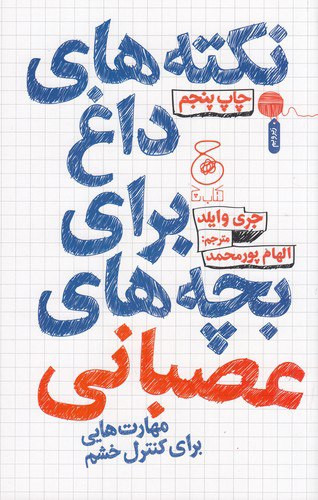 نکته‌های
چاپ پنجم
زیر و بم
داغ
کتاب چ
برای
جری وایلد
مترجم:
الهام پورمحمد
بچه‌های
عصبانی
مهارت‌هایی
برای کنترل خشم